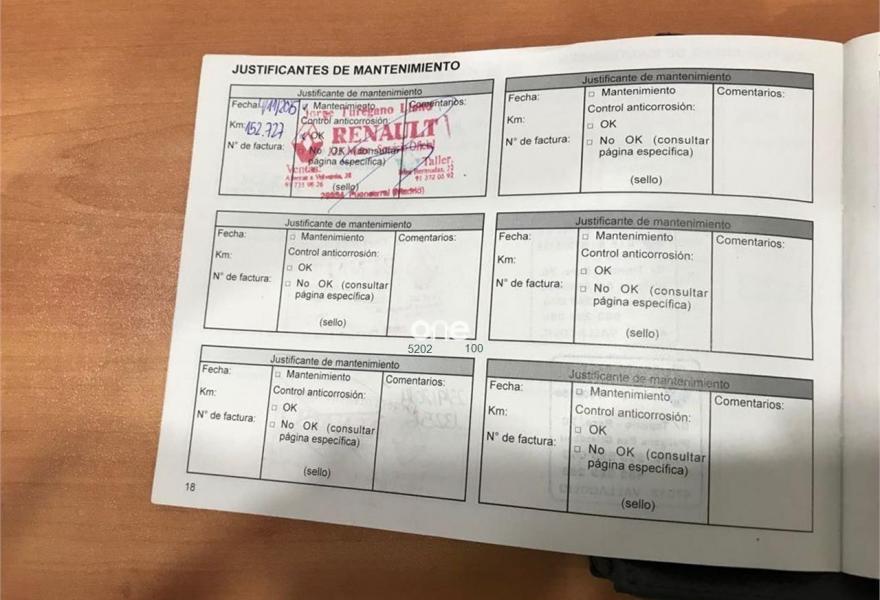 JUSTIFICANTES DE MANTENIMIENTO
Justificante de mantenimiento
Fecha: 4/11/2015
Mantenimiento
Comentarios:
Km: 152.727
Control anticorrosión:
OK
N° de factura:
No OK (consultar
página específica)
(sello)
Jorge Turégano
RENAULT
Ventas:
Taller:
28034 Fuencarral (Madrid)
Justificante de mantenimiento
Fecha:
Mantenimiento
Comentarios:
Km:
Control anticorrosión:
OK
N° de factura:
No OK (consultar
página específica)
(sello)
Justificante de mantenimiento
Fecha:
Mantenimiento
Comentarios:
Km:
Control anticorrosión:
OK
N° de factura:
No OK (consultar
página específica)
(sello)
Justificante de mantenimiento
Fecha:
Mantenimiento
Comentarios:
Km:
Control anticorrosión:
OK
No OK (consultar
N° de factura:
página específica)
(sello)
one
5202 100
Justificante de mantenimiento
Fecha:
Mantenimiento
Comentarios:
Km:
Control anticorrosión:
OK
N° de factura:
No OK (consultar
página específica)
(sello)
Justificante de mantenimiento
Fecha:
Mantenimiento
Comentarios:
Km:
Control anticorrosión:
OK
N° de factura:
No OK (consultar
página específica)
(sello)
18